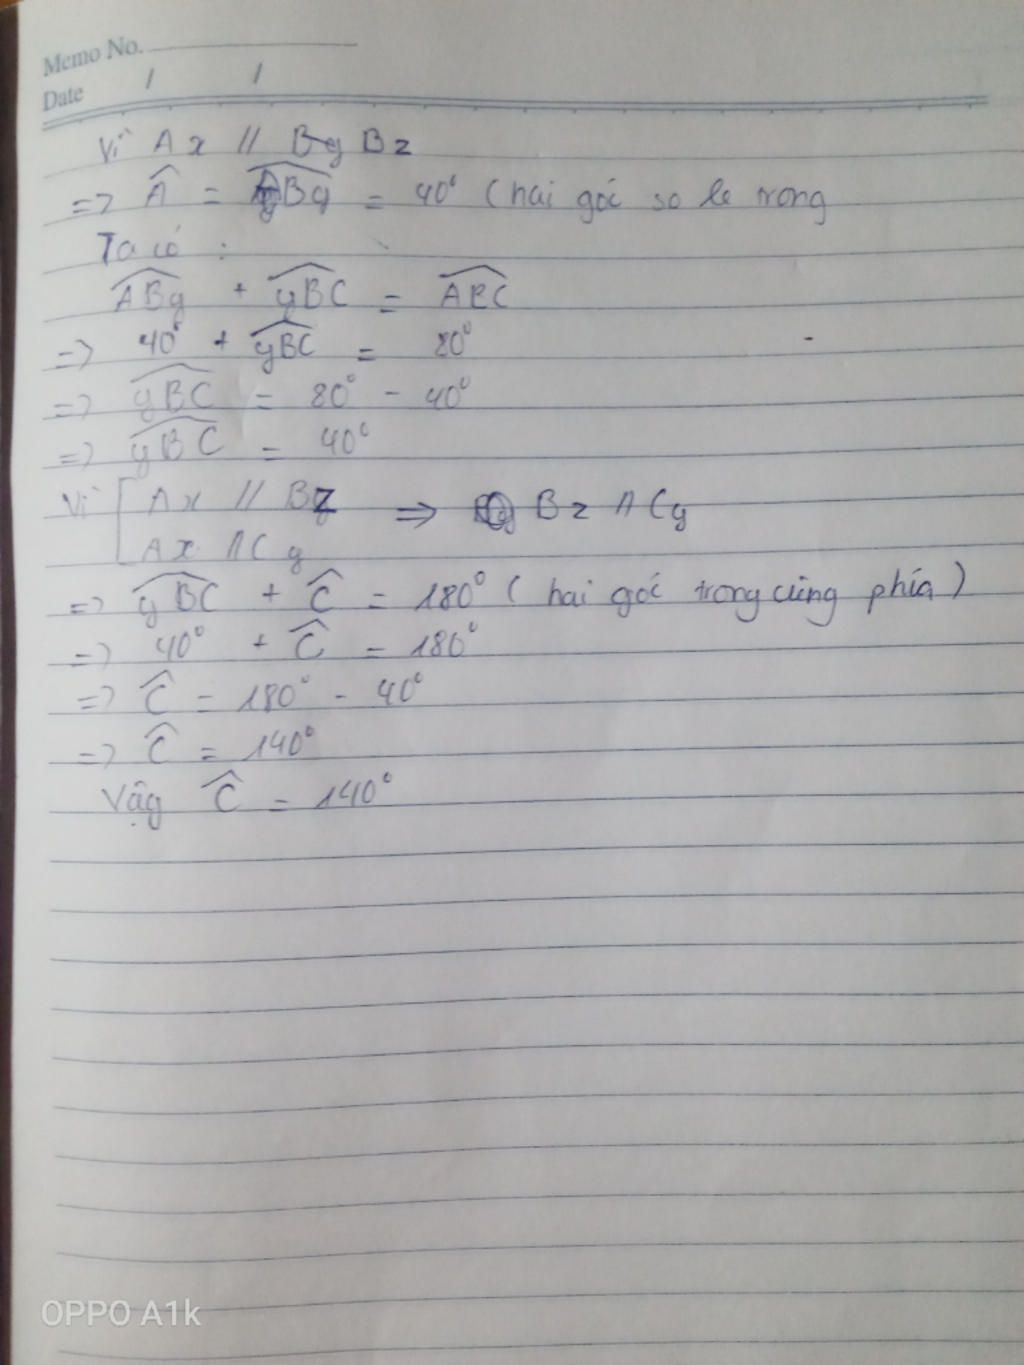 Memo No.
Date / /
Vì Ax // By Bz
=> Â = ABy = 40° (hai góc so le trong
Ta có :
ABy + yBC = ABC
=> 40° + yBC = 80°
=> yBC = 80° - 40°
=> yBC = 40°
Vì [ Ax // Bz => Bz // Cy
Ax // Cy
=> yBC + Ĉ = 180° ( hai góc trong cùng phía )
=> 40° + Ĉ = 180°
=> Ĉ = 180° - 40°
=> Ĉ = 140°
Vậy Ĉ = 140°
OPPO A1k